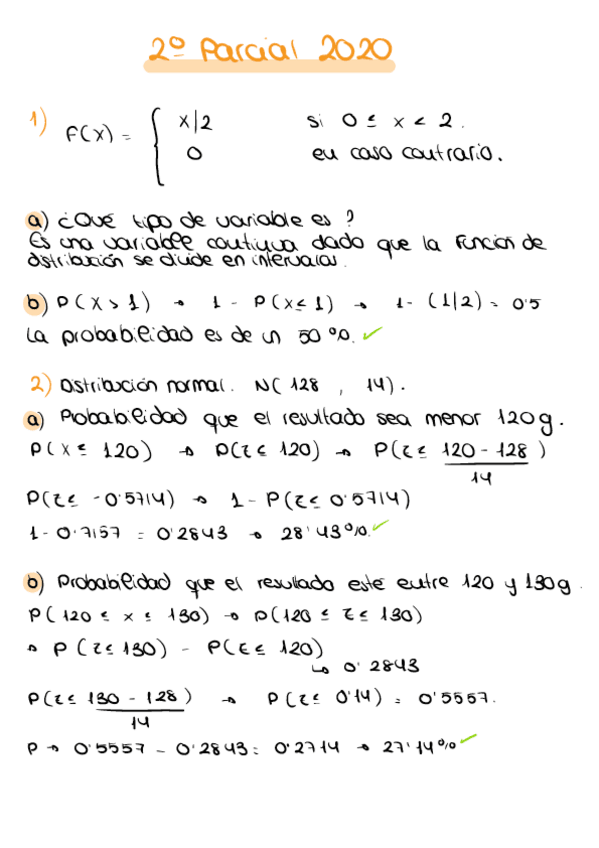 2º Parcial 2020
1) F(x) = { x/2 si 0 ≤ x < 2.
0 en caso contrario.
a) ¿Qué tipo de variable es?
Es una variable continua dado que la función de
distribución se divide en intervalos.
b) P(X > 1) → 1 - P(x ≤ 1) → 1 - (1/2) = 0'5
La probabilidad es de un 50%. ✓
2) Distribución normal. N(128, 14).
a) Probabilidad que el resultado sea menor 120g.
P(X ≤ 120) → P(z ≤ 120) → P(z ≤ 120 - 128 / 14)
P(z ≤ -0'5714) → 1 - P(z ≤ 0'5714)
1 - 0'7157 = 0'2843 → 28'43%. ✓
b) Probabilidad que el resultado esté entre 120 y 130g.
P(120 ≤ x ≤ 130) → P(120 ≤ z ≤ 130)
→ P(z ≤ 130) - P(z ≤ 120)
↳ 0'2843
P(z ≤ 130 - 128 / 14) → P(z ≤ 0'14) = 0'5557.
P → 0'5557 - 0'2843 = 0'2714 → 27'14% ✓